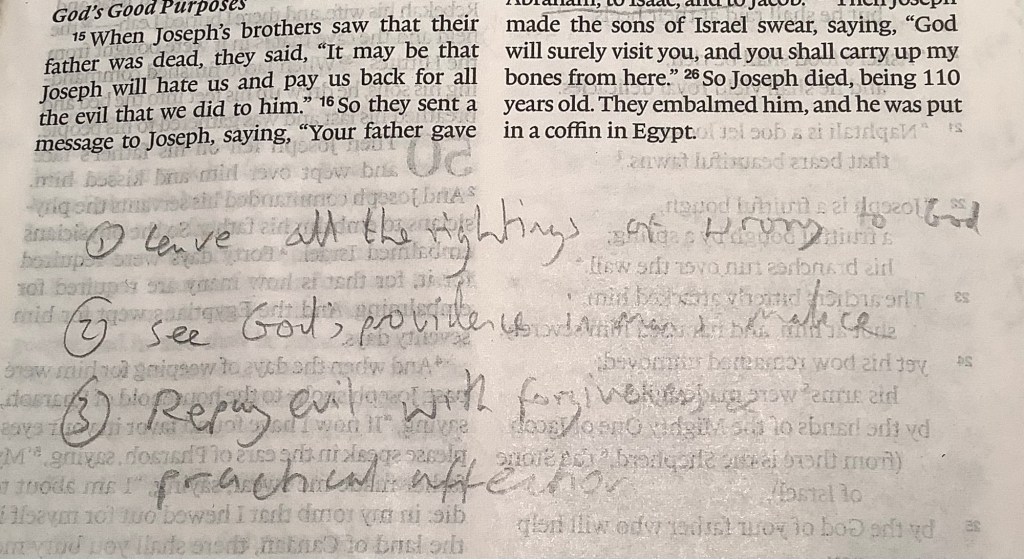 God's Good Purposes
15 When Joseph's brothers saw that their
father was dead, they said, "It may be that
Joseph will hate us and pay us back for all
the evil that we did to him." 16 So they sent a
message to Joseph, saying, "Your father gave
Abraham, to Isaac, and to Jacob." Then Joseph
made the sons of Israel swear, saying, "God
will surely visit you, and you shall carry up my
bones from here." 26 So Joseph died, being 110
years old. They embalmed him, and he was put
in a coffin in Egypt.
① Leave all the rightings of wrong to God
② see God's providence in man's malice
③ Repay evil with forgiveness
practical affection